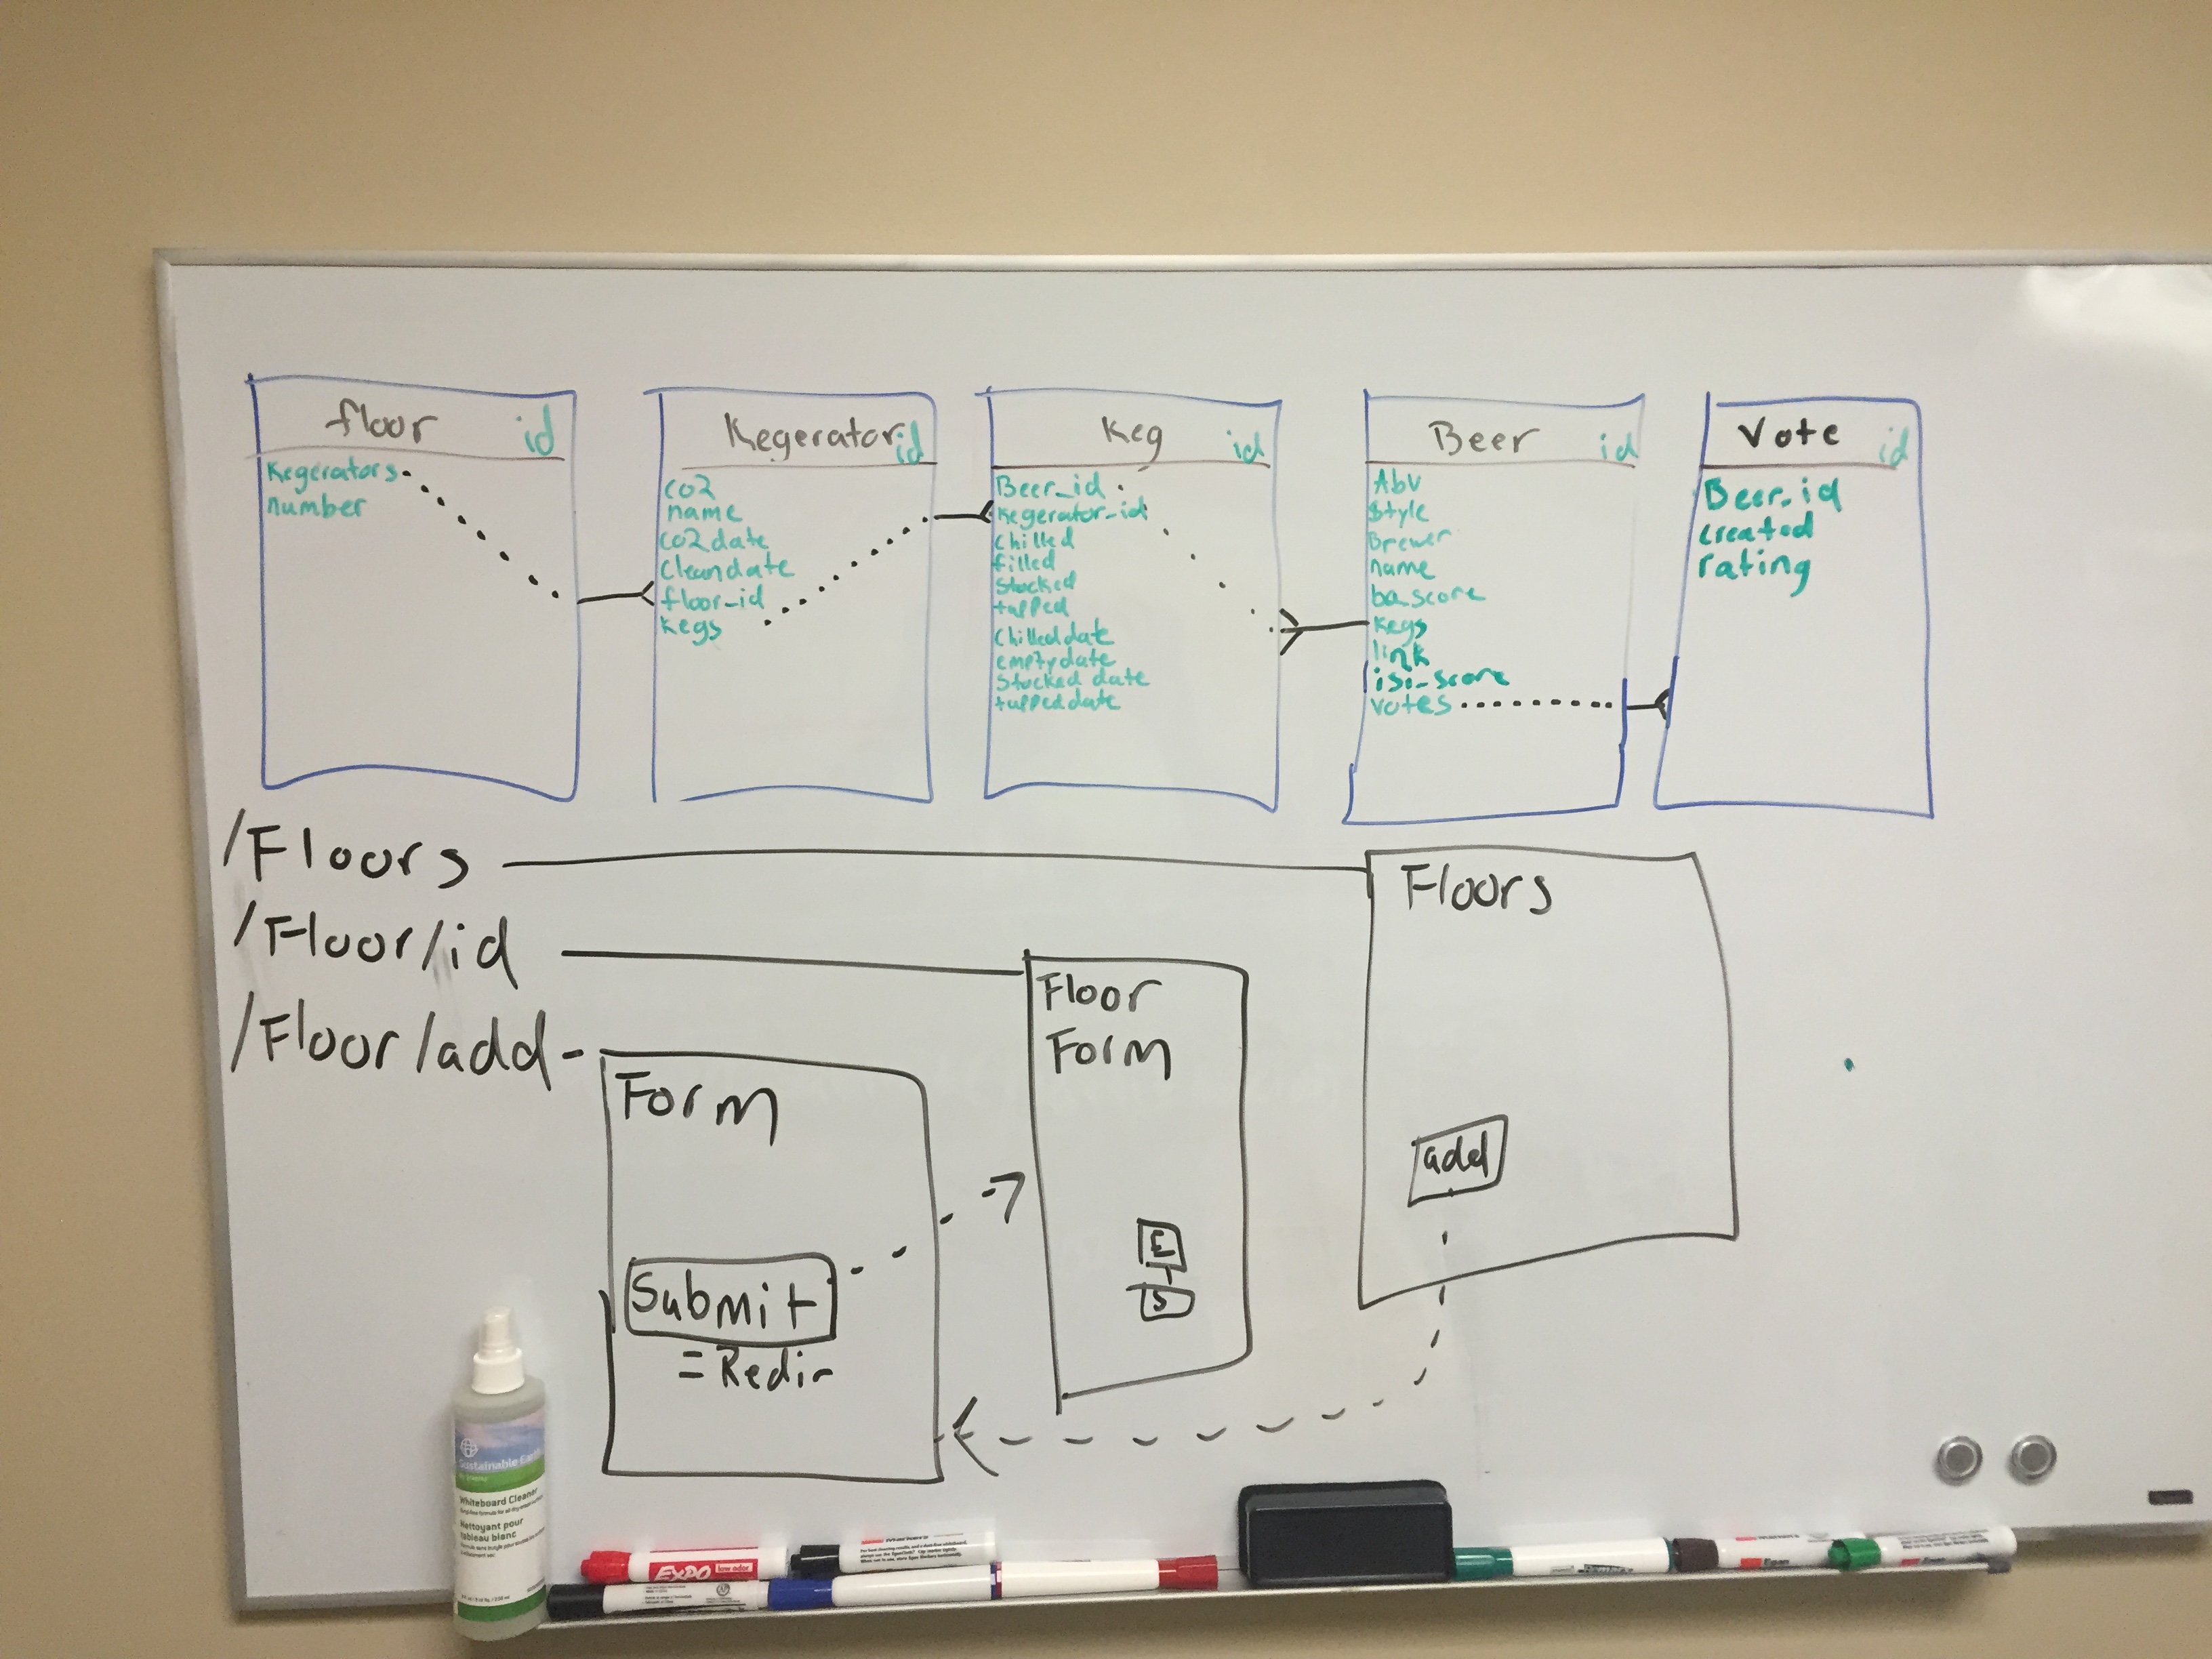 floor id
Kegerators
number
Kegerator id
co2
name
co2 date
Clean date
floor_id
kegs
Keg id
Beer_id
Kegerator_id
Chilled
filled
Stocked
tapped
Chilled date
empty date
Stocked date
tapped date
Beer id
Abv
Style
Brewer
name
ba_score
kegs
link
isi_score
votes
Vote id
Beer_id
created
rating
/Floors
/Floor/id
/Floor/add
Form
Submit
= Redir
Floor
Form
E
S
Floors
add
Sustainable Earth
Whiteboard Cleaner
Nettoyant pour
tableau blanc
EXPO low odor
Expo